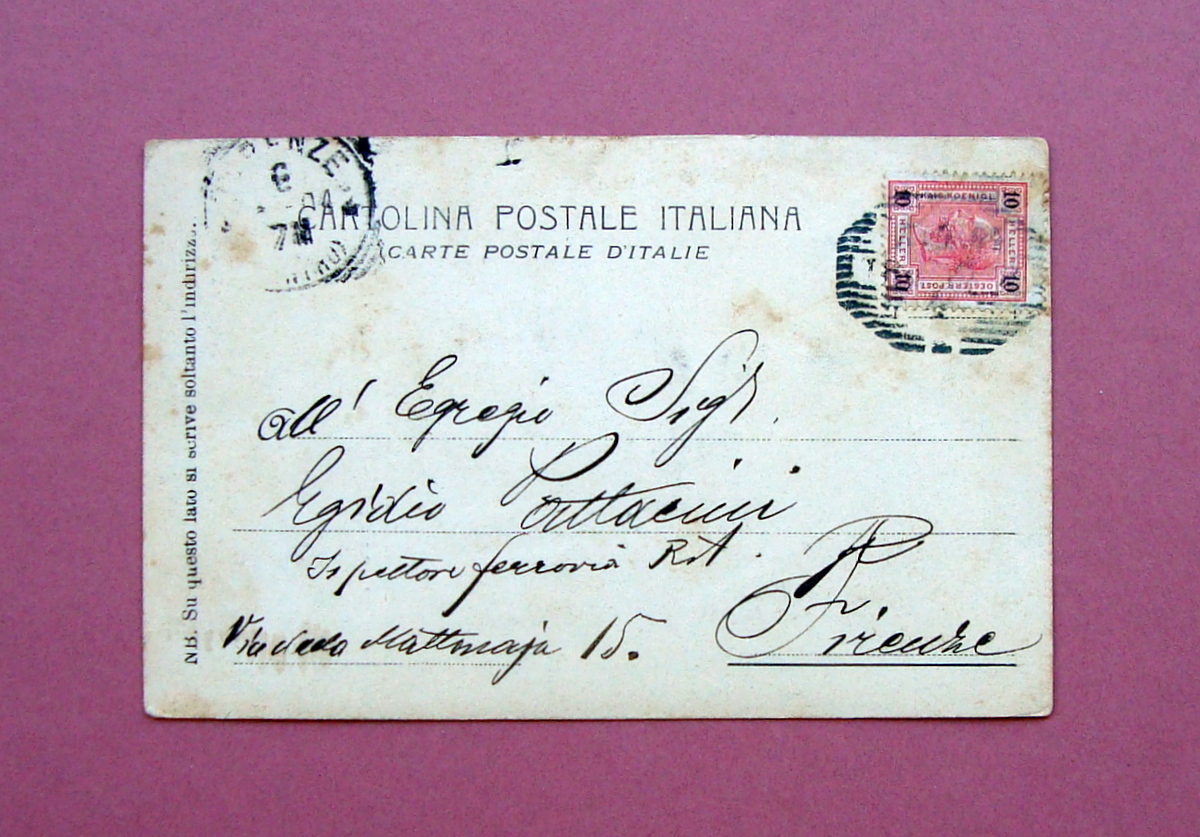 FIRENZE
6
04
7M
CARTOLINA POSTALE ITALIANA
(CARTE POSTALE D'ITALIE
10 10
KAIS. KOENIGL.
HELLER HELLER
OESTERR. POST.
10 10
NB. Su questo lato si scrive soltanto l'indirizzo.
All' Egregio Sigr.
Egidio Pattacini
Ispettore ferrovia R.A.
Via della Mattonaja 15.
Firenze